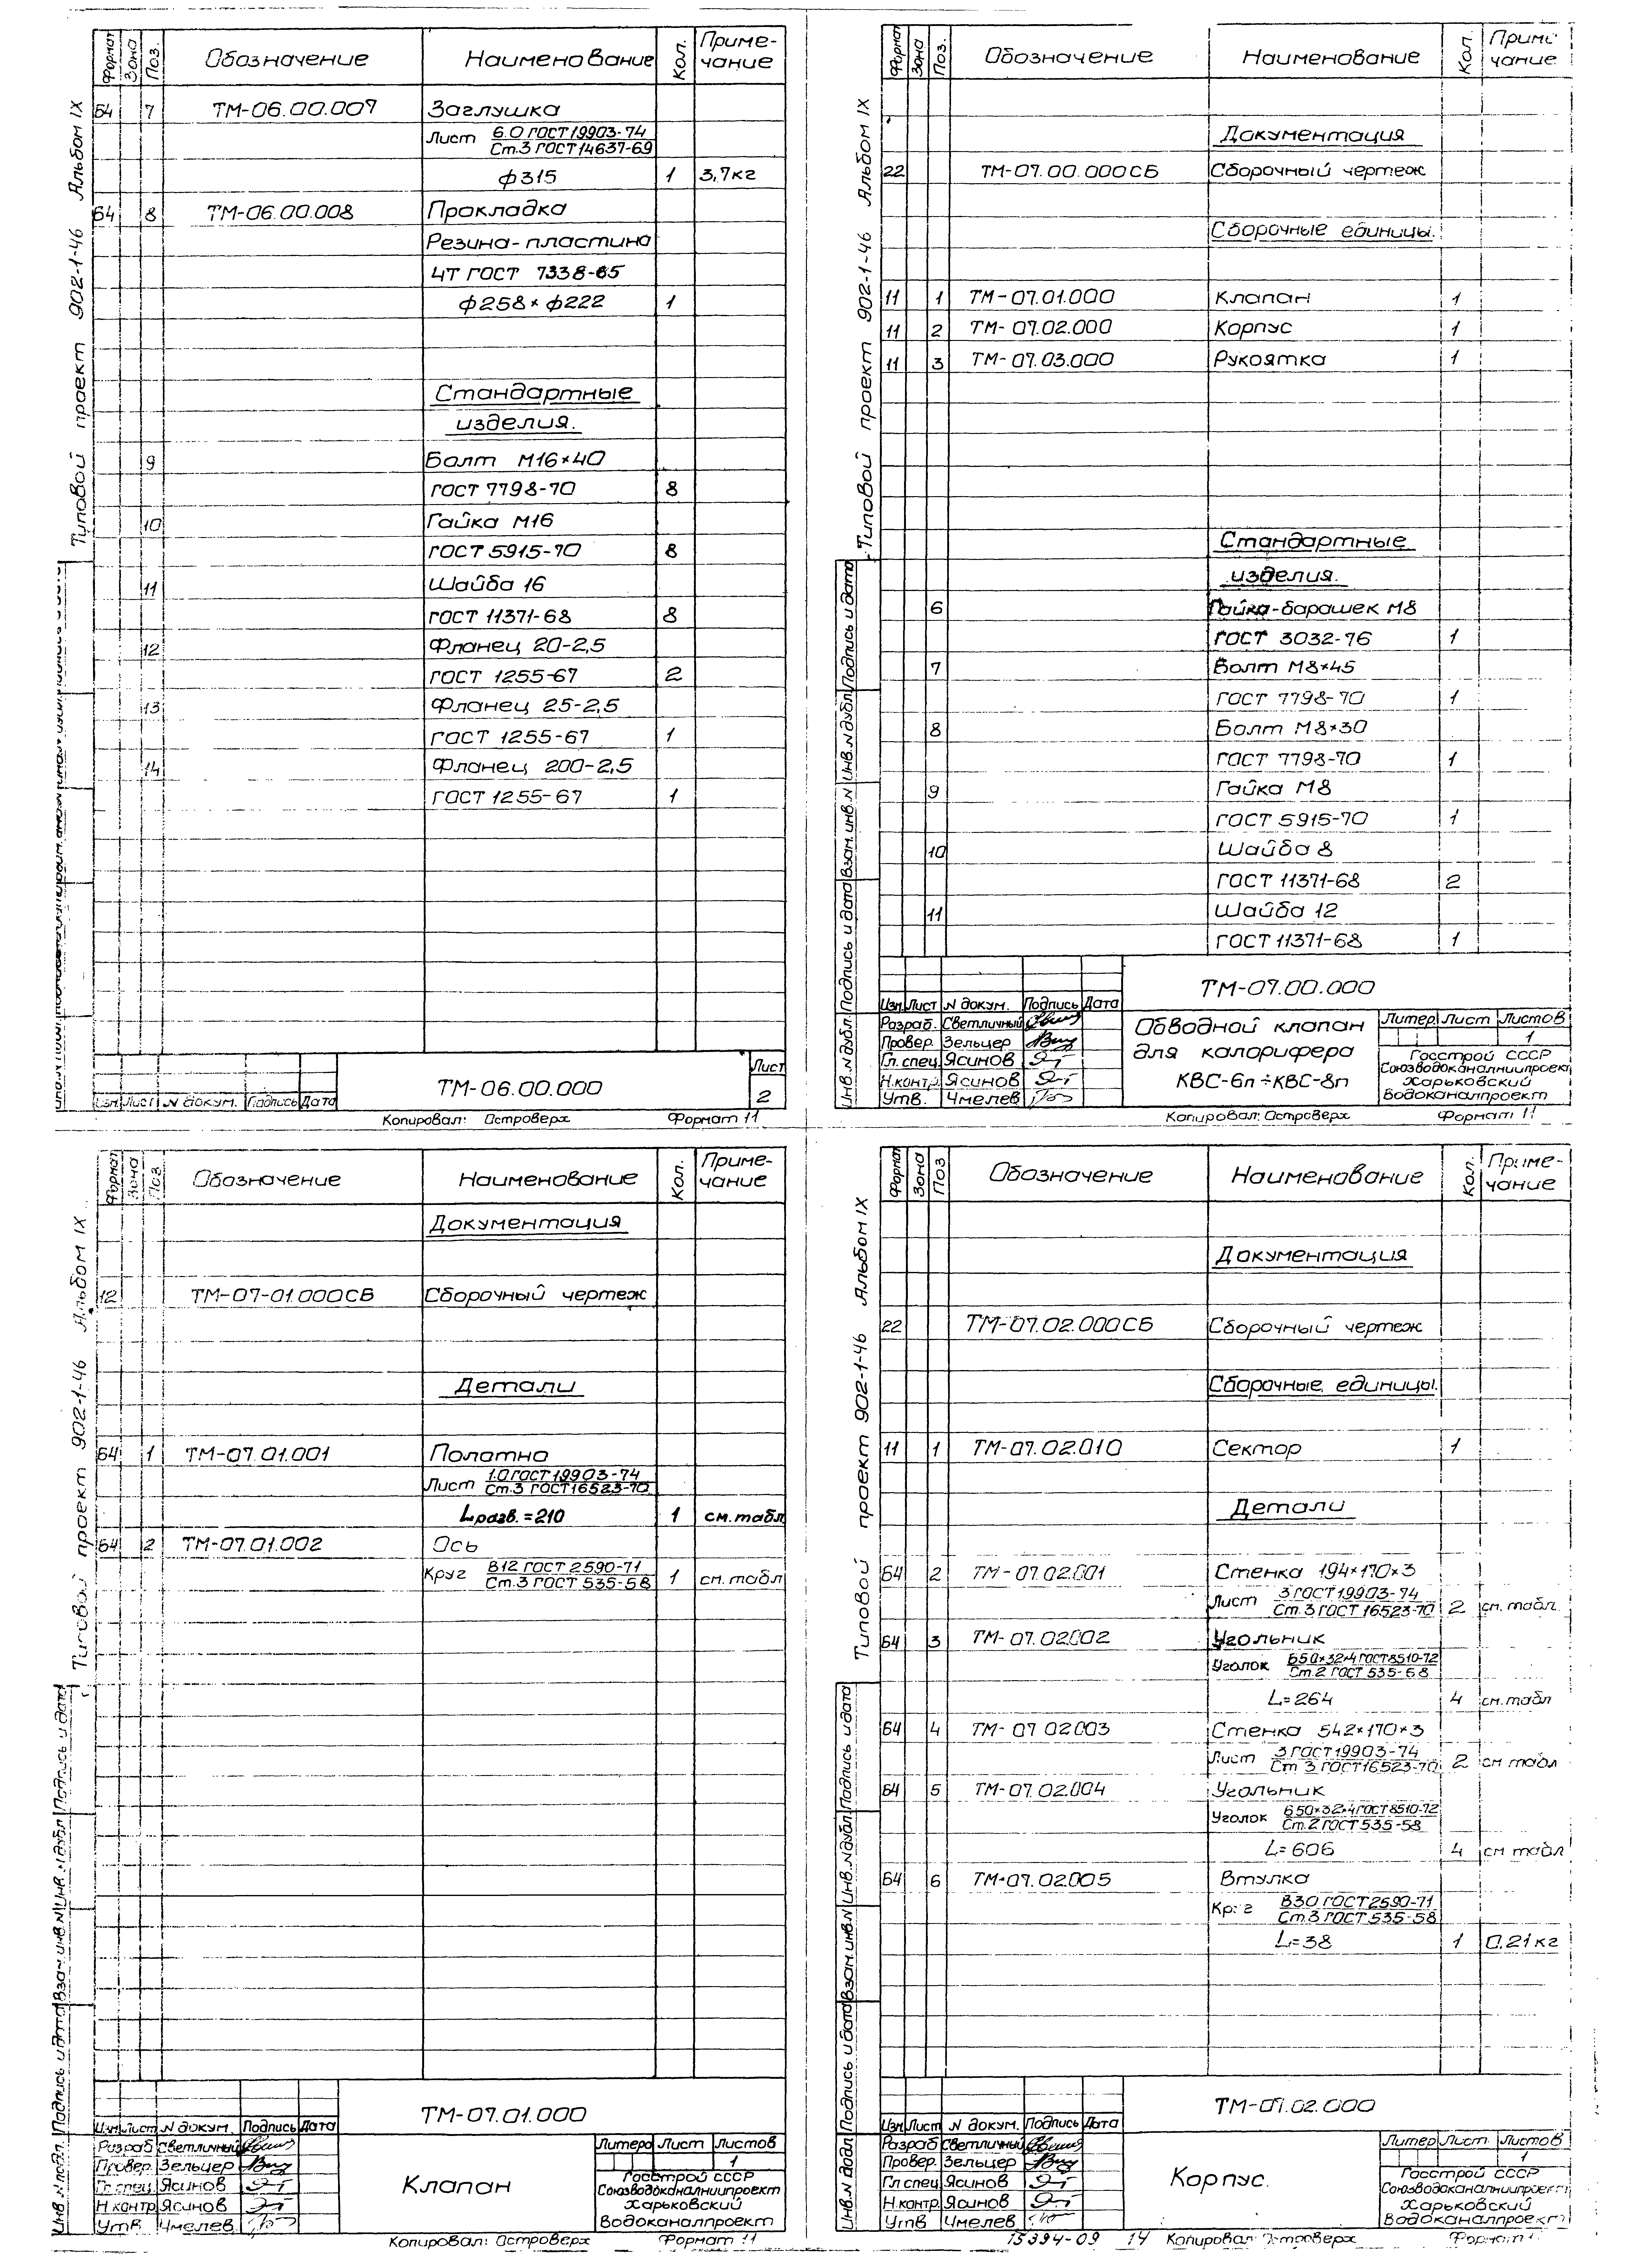 Типовой проект 902-1-46 Альбом IX
Формат Зона Поз. Обозначение Наименование Кол. Приме-
чание
Б4 7 ТМ-06.00.007 Заглушка
Лист 6.0 ГОСТ 19903-74
Ст.3 ГОСТ 14637-69
ф315 1 3,7кг
Б4 8 ТМ-06.00.008 Прокладка
Резина-пластина
4Т ГОСТ 7338-65
ф258×ф222 1
Стандартные
изделия.
9 Болт М16×40
ГОСТ 7798-70 8
10 Гайка М16
ГОСТ 5915-70 8
11 Шайба 16
ГОСТ 11371-68 8
12 Фланец 20-2,5
ГОСТ 1255-67 2
13 Фланец 25-2,5
ГОСТ 1255-67 1
14 Фланец 200-2,5
ГОСТ 1255-67 1
ТМ-06.00.000
Лист
2
Изм. Лист N докум. Подпись Дата
Копировал: Островерх Формат 11
Типовой проект 902-1-46 Альбом IX
Формат Зона Поз. Обозначение Наименование Кол. Приме
чание
Документация
22 ТМ-07.00.000СБ Сборочный чертеж
Сборочные единицы.
11 1 ТМ-07.01.000 Клапан 1
11 2 ТМ-07.02.000 Корпус 1
11 3 ТМ-07.03.000 Рукоятка 1
Стандартные
изделия.
6 Гайка-барашек М8
ГОСТ 3032-76 1
7 Болт М8×45
ГОСТ 7798-70 1
8 Болт М8×30
ГОСТ 7798-70 1
9 Гайка М8
ГОСТ 5915-70 1
10 Шайба 8
ГОСТ 11371-68 2
11 Шайба 12
ГОСТ 11371-68 1
Инв.N дубл. Подпись и дата Взам.инв.N Инв.N дубл Подпись и дата
ТМ-07.00.000
Изм. Лист N докум. Подпись Дата
Разраб. Светличный
Провер. Зельцер
Гл.спец. Ясинов
Н.контр. Ясинов
Утв. Чмелев
Обводной клапан
для калорифера
КВС-6п÷КВС-8п
Литер Лист Листов
1
Госстрой СССР
Союзводоканалниипроект
Харьковский
Водоканалпроект
Копировал: Островерх Формат 11
Типовой проект 902-1-46 Альбом IX
Формат Зона Поз. Обозначение Наименование Кол. Приме-
чание
Документация
12 ТМ-07-01.000СБ Сборочный чертеж
Детали
Б4 1 ТМ-07.01.001 Полотно
Лист 1.0 ГОСТ 19903-74
Ст.3 ГОСТ 16523-70
Lразв.=210 1 см.табл
Б4 2 ТМ-07.01.002 Ось
Круг В12 ГОСТ 2590-71
Ст.3 ГОСТ 535-58 1 см.табл
Инв.N подл. Подпись и дата Взам.инв.N Инв.N дубл Подпись и дата
ТМ-07.01.000
Изм. Лист N докум. Подпись Дата
Разраб Светличный
Провер. Зельцер
Гл.спец. Ясинов
Н.контр Ясинов
Утв. Чмелев
Клапан
Литера Лист Листов
1
Госстрой СССР
Союзводоканалниипроект
Харьковский
Водоканалпроект
Копировал: Островерх Формат 11
Типовой проект 902-1-46 Альбом IX
Формат Зона Поз Обозначение Наименование Кол. Приме-
чание
Документация
22 ТМ-07.02.000СБ Сборочный чертеж
Сборочные единицы.
11 1 ТМ-07.02.010 Сектор 1
Детали
Б4 2 ТМ-07.02.001 Стенка 194×170×3
Лист 3 ГОСТ 19903-74
Ст.3 ГОСТ 16523-70 2 см.табл.
Б4 3 ТМ-07.02.002 Угольник
Уголок Б50×32×4 ГОСТ 8510-72
Ст.2 ГОСТ 535-58
L=264 4 см.табл
Б4 4 ТМ-07.02.003 Стенка 542×170×3
Лист 3 ГОСТ 19903-74
Ст 3 ГОСТ 16523-70 2 см табл
Б4 5 ТМ-07.02.004 Угольник
Уголок Б50×32×4 ГОСТ 8510-72
Ст.2 ГОСТ 535-58
L=606 4 см табл
Б4 6 ТМ-07.02.005 Втулка
Круг В30 ГОСТ 2590-71
Ст.3 ГОСТ 535-58
L=38 1 0,21кг
Инв.N подл Подпись и дата Взам.инв.N Инв.N дубл Подпись и дата
ТМ-07.02.000
Изм. Лист N докум. Подпись Дата
Разраб Светличный
Провер. Зельцер
Гл.спец Ясинов
Н.контр Ясинов
Утв Чмелев
Корпус.
Литер Лист Листов
1
Госстрой СССР
Союзводоканалниипроект
Харьковский
Водоканалпроект
15394-09 14 Копировал Островерх Формат